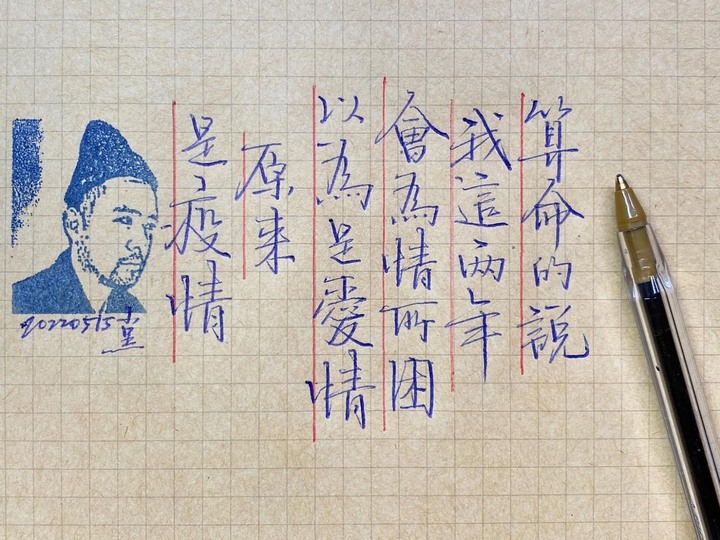 算命的說
我這两年
會為情所困
以為是愛情
原来
是疫情
20220515